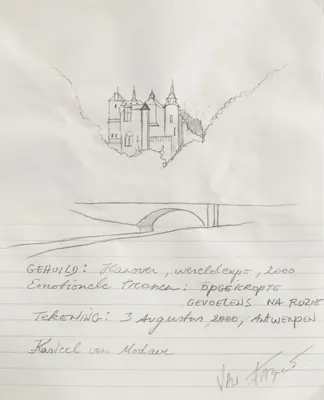 GEHUILD: Hanover, wereldexpo, 2000
Emotionele trance: OPGEKROPTE
GEVOELENS NA RUZIE
TEKENING: 3 Augustus, 2000, ANTWERPEN
Kasteel van Modave
Jan